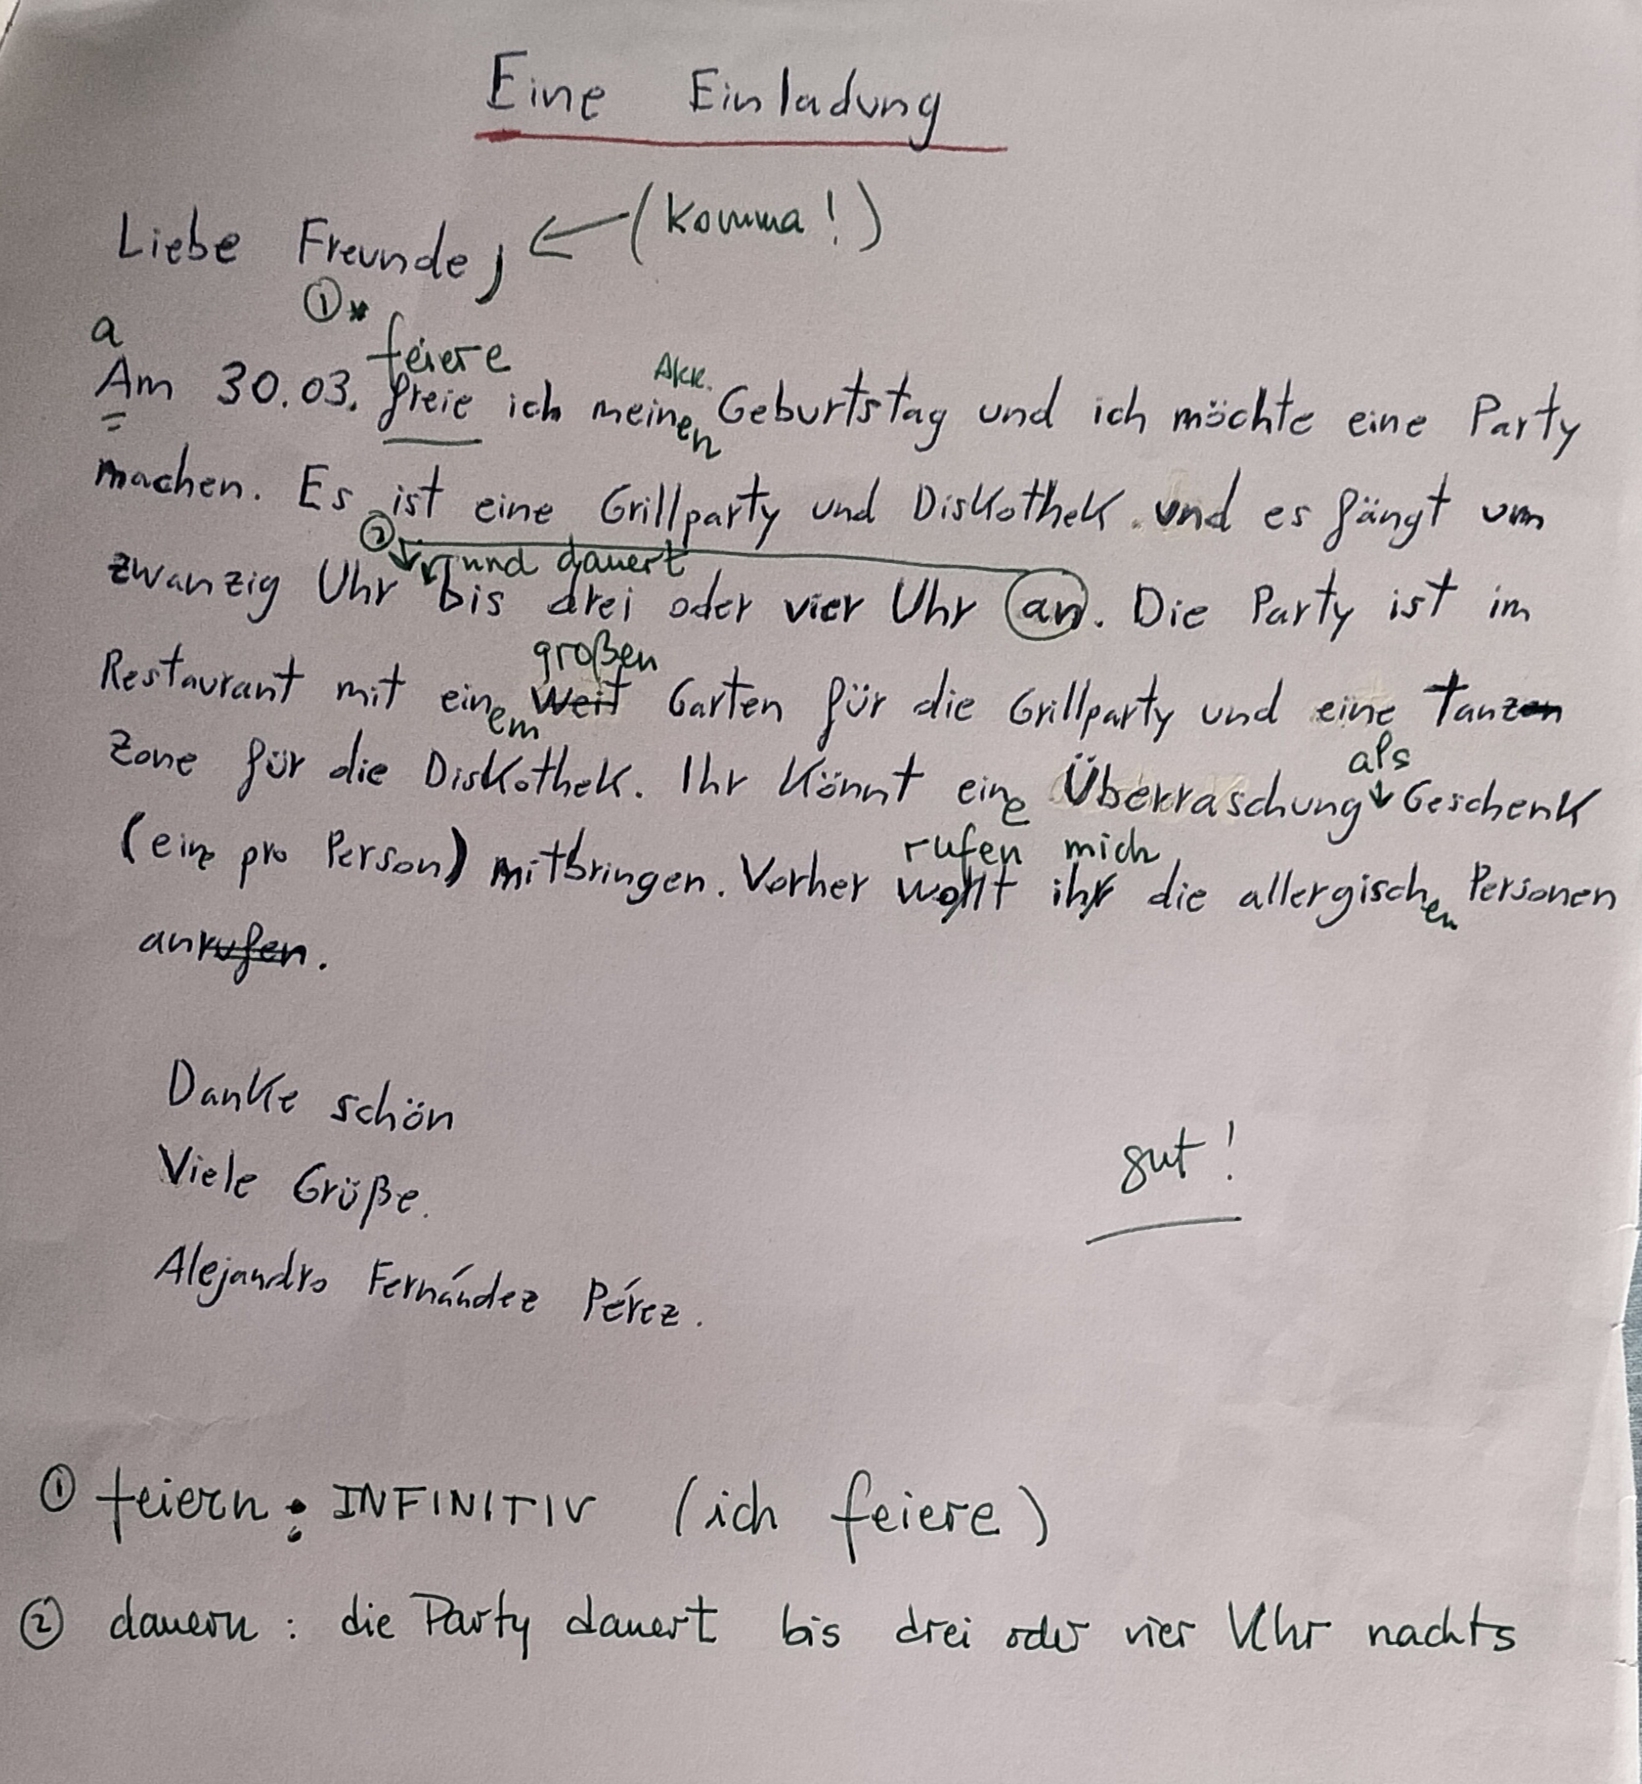 Eine Einladung
Liebe Freunde, ← (Komma!)
① *
a feiere Akk.
Am 30.03. freie ich meinen Geburtstag und ich möchte eine Party
machen. Es ist eine Grillparty und Diskothek. und es fängt um
② und dauert
zwanzig Uhr bis drei oder vier Uhr an. Die Party ist im
großen
Restaurant mit einem weit Garten für die Grillparty und eine Tanzen
als
Zone für die Diskothek. Ihr könnt eine Überraschung Geschenk
rufen mich
(eine pro Person) mitbringen. Vorher wollt ihr die allergischen Personen
anrufen.
Danke schön
Viele Grüße.
gut!
Alejandro Fernández Pérez.
① feiern: INFINITIV (ich feiere)
② dauern: die Party dauert bis drei oder vier Uhr nachts